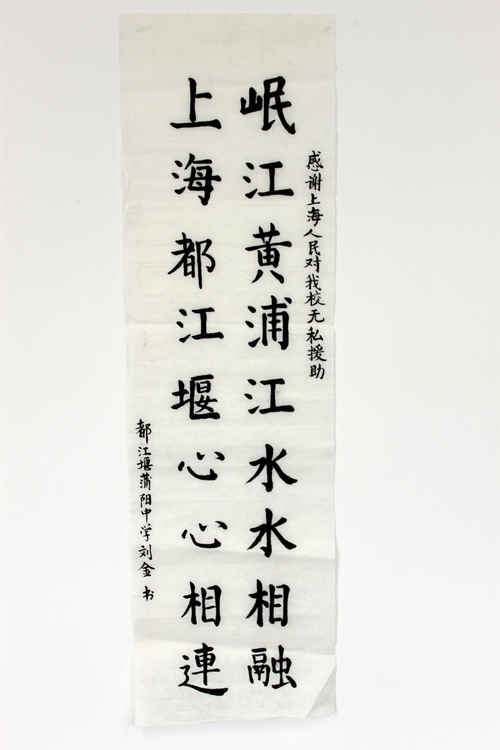 感谢上海人民对我校无私援助
岷江黄浦江水水相融
上海都江堰心心相連
都江堰蒲阳中学刘金书